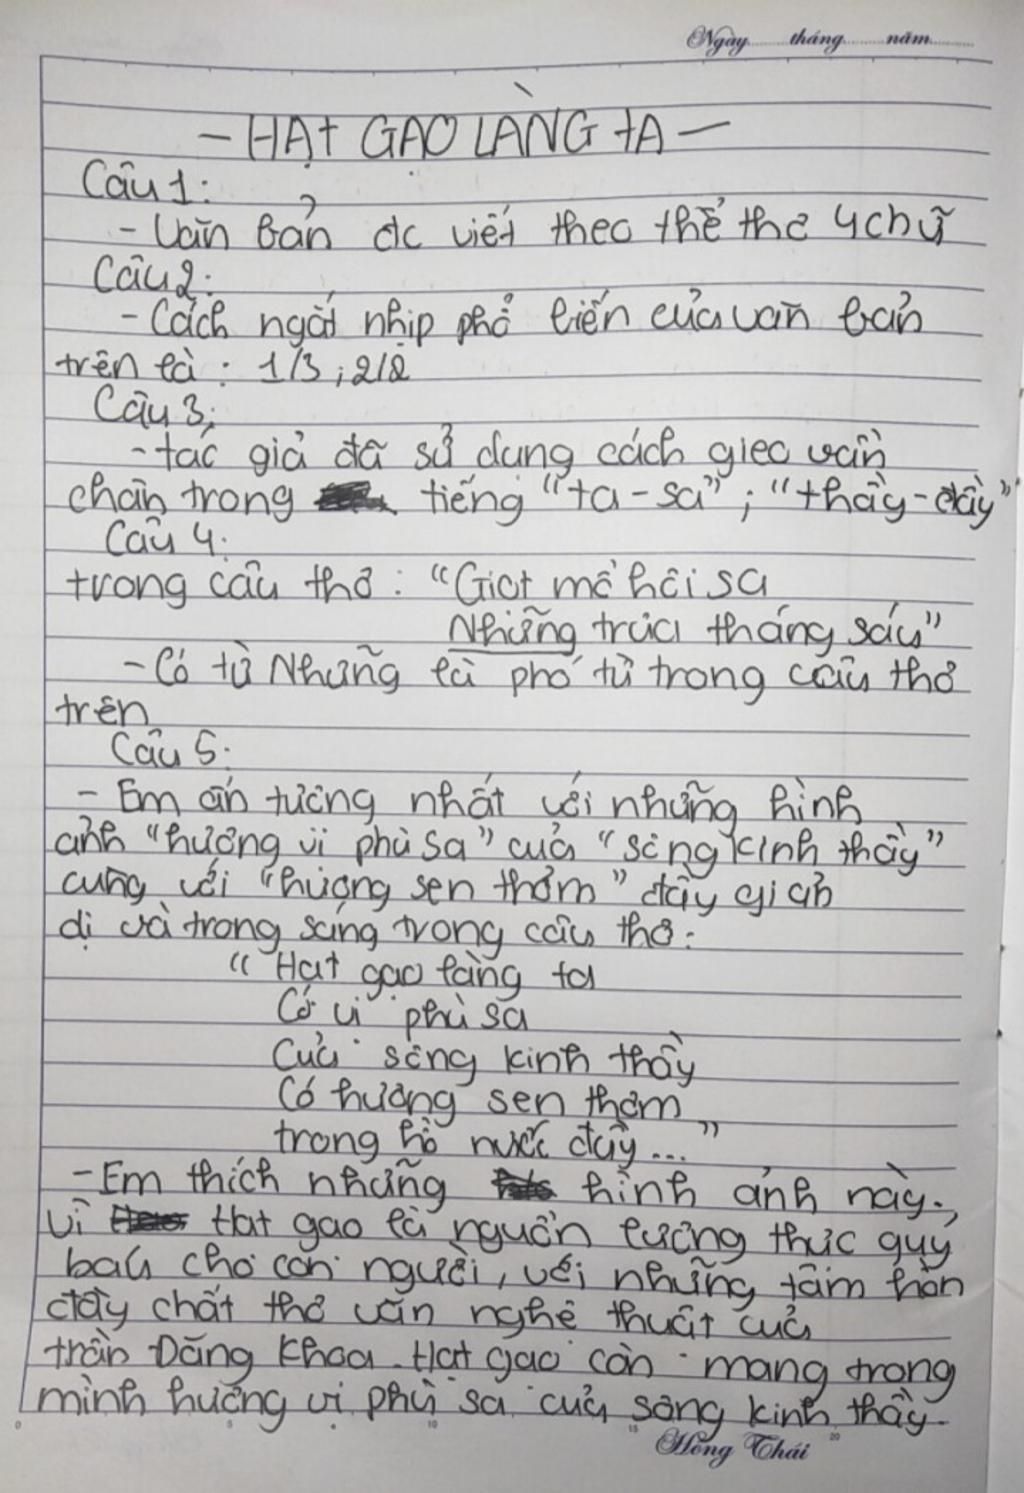 Ngày........tháng........năm........
- HẠT GẠO LÀNG TA -
Câu 1:
- Văn bản đc viết theo thể thơ 4 chữ
Câu 2:
- Cách ngắt nhịp phổ biến của văn bản
trên là: 1/3; 2/2
Câu 3:
- tác giả đã sử dụng cách gieo vần
chân trong tiếng "ta - sa"; "thầy - đầy"
Câu 4:
trong câu thơ: "Giọt mồ hôi sa
Những trưa tháng sáu"
- Có từ Những là phó từ trong câu thơ
trên
Câu 5:
- Em ấn tượng nhất với những hình
ảnh "hương vị phù sa" của "sông kinh thầy"
cùng với "hương sen thơm" đầy giản
dị và trong sáng trong câu thơ:
"Hạt gạo làng ta
Có vị phù sa
Của sông kinh thầy
Có hương sen thơm
trong hồ nước đầy..."
- Em thích những hình ảnh này.,
vì Hạt gạo là nguồn lương thực quý
báu cho con người, với những tâm hồn
đầy chất thơ văn nghệ thuật của
trần Đăng Khoa. Hạt gạo còn mang trong
mình hương vị phù sa của sông kinh thầy.
Hồng Thái